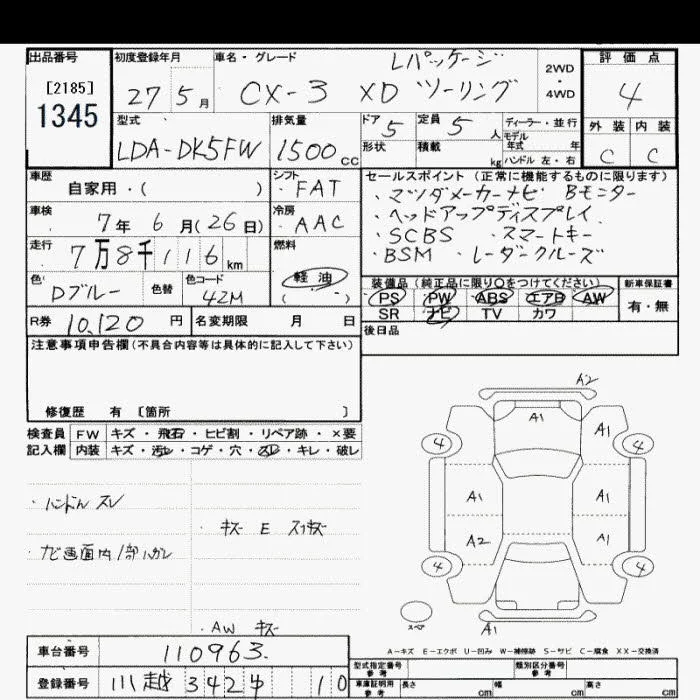 出品番号
[2185]
1345
初度登録年月
27 5月
車名・グレード
Lパッケージ
CX-3 XD ツーリング
2WD
・
4WD
評価点
4
外装 内装
C C
型式
LDA-DK5FW
排気量
1500cc
ドア 5
形状
定員 5人
積載 kg
ディーラー・並行
モデル
年式 年
ハンドル 左・右
車歴
自家用・( )
シフト
FAT
車検
7年 6月(26日)
冷房
AAC
走行
7万8千116km
燃料
軽油
( )
色
Dブルー
色替
色コード
42M
R券 10,120 円
名変期限 月 日
セールスポイント(正常に機能するものに限ります)
・マツダメーカーナビ Bモニター
・ヘッドアップディスプレイ
・SCBS ・スマートキー
・BSM ・レーダークルーズ
装備品(純正品に限り○をつけてください)
PS PW ABS エアB AW
SR ナビ TV カワ
新車保証書
有・無
後日品
注意事項申告欄(不具合内容等は具体的に記入して下さい)
修復歴 有 〔箇所 〕
検査員
記入欄
FW キズ・飛石・ヒビ割・リペア跡・×要
内装 キズ・汚レ・コゲ・穴・スレ・キレ・破レ
・ハンドル スレ
・キズ E スリキズ
・ナビ画面内1部ハガレ
・AW キズ
A2
A1
A1
4
4
A1
A1
A2
A1
4
4
スペア
A1
A-キズ E-エクボ U-凹み W-補修跡 S-サビ C-腐食 XX-交換済
車台番号 110963.
登録番号 川越 342 4 10
型式指定番号
参考
類別区分番号
参考
車庫証明用
参考
長さ cm 幅 cm 高さ cm